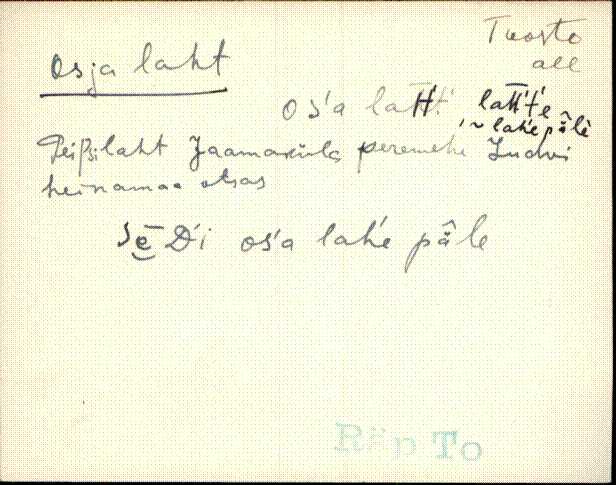 Osja laht
Tuosto
all
os'a laht't', laht't'e
~ lah'e pâle
Peipsilaht Jaamaküla peremehe Indvi
heinamaa otsas
sēDi os'a lah'e pâle
Räp To